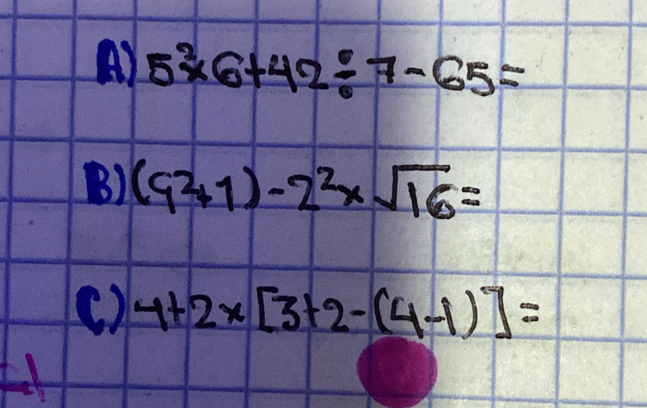 A) 5²×6+42÷7-65=
B) (9²+1)-2²×√16=
C) 4+2×[3+2-(4-1)]=